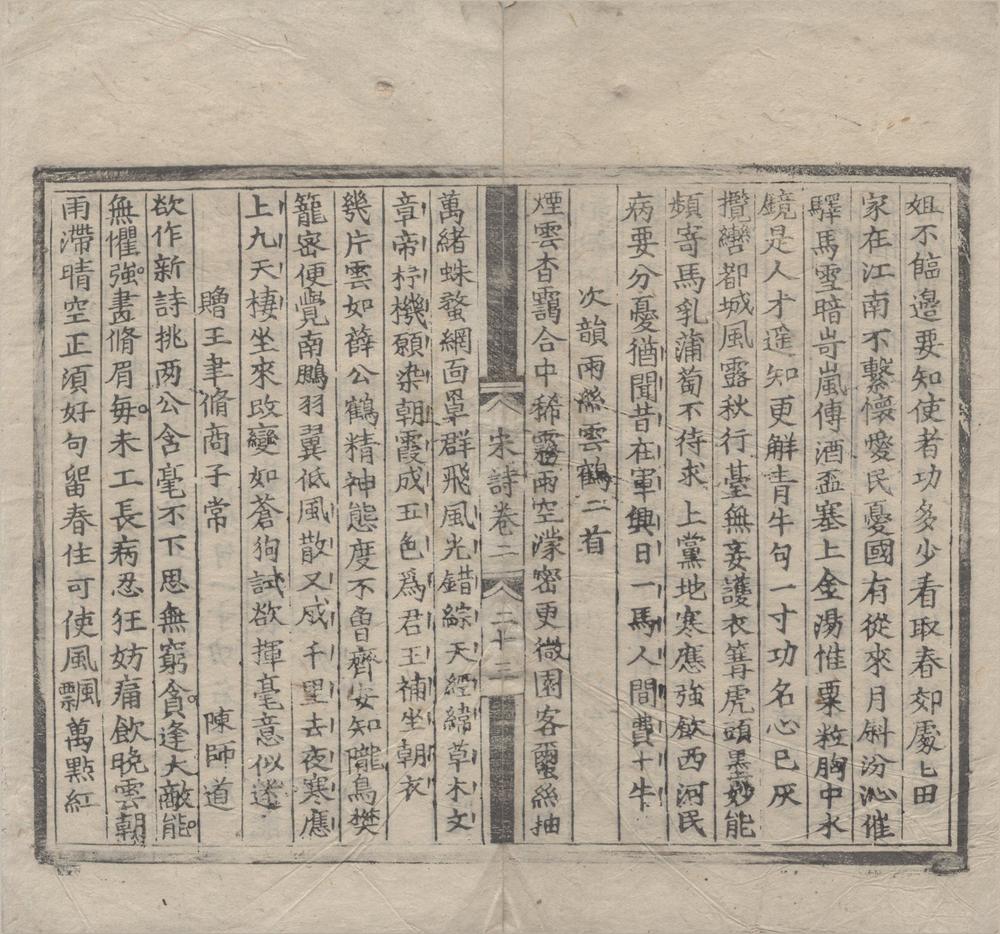 姐不饈邉要知使者功多少看取春郊處〻田
家在江南不繫懷愛民憂國有從來月斜汾沁催
驛馬雪暗岢嵐傳酒盃塞上金湯惟粟粒胸中水
鏡是人才遥知更解青牛句一寸功名心已灰
攬轡都城風露秋行臺無妾護衣篝虎頭黒妙能
頻寄馬乳蒲萄不待求上黨地寒應強飲西河民
病要分憂猶聞昔在軍興日一馬人間費十牛
次韻雨絲雲鶴二首
煙雲杳靄合中稀霧雨空濛密更微園客蠒絲抽
宋詩卷二 二十三
萬緒蛛蝥網面罩群飛風光錯綜天經緯草木文
章帝杼機願染朝霞成五色爲君王補坐朝衣
幾片雲如薛公鶴精神態度不曾齊安知隴鳥樊
籠密便覺南鵬羽翼低風散又成千里去夜寒應
上九天棲坐來改變如蒼狗試欲揮毫意似迷
贈王聿脩商子常 陳師道
欲作新詩挑两公含毫不下思無窮貪逢大敵能
無懼強畫脩眉毎未工長病忍狂妨痛飲晚雲朝
雨滯晴空正須好句留春住可使風飄萬點紅